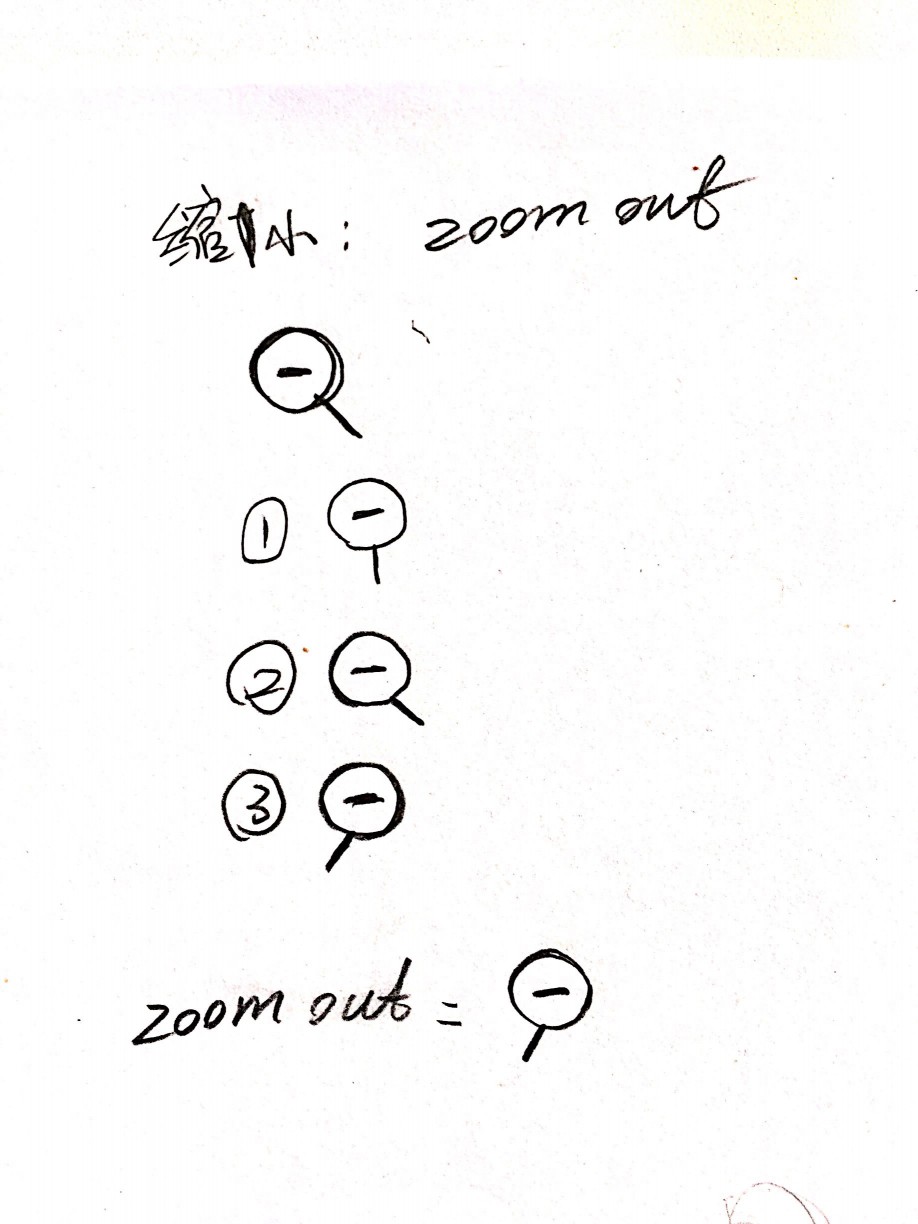 缩小: zoom out
①
②
③
zoom out =